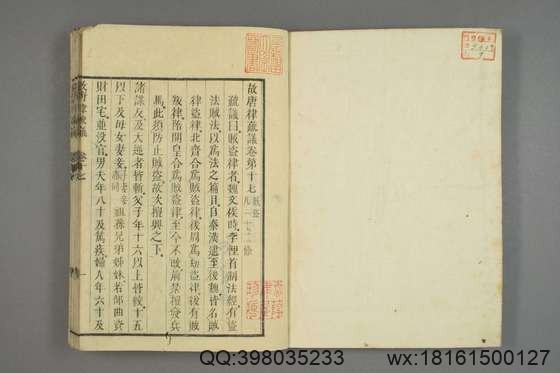 故唐律疏議卷第十七 賊盜
疏議曰賊盜律者魏文侯時李悝首制法經有盜
法賊法以爲法之篇目自秦漢逮至後魏皆名賊
律盜律北齊合爲賊盜律後周爲劫盜律復有賊
叛律隋開皇合爲賊盜律至今不改前禁擅發兵
馬此須防止賊盜故次擅興之下
諸謀反及大逆者皆斬父子年十六以上皆絞十五
以下及母女妻妾祖孫兄弟姊妹若部曲資
財田宅並沒官男夫年八十及篤疾婦人年六十及
QQ:398035233
wx:18161500127